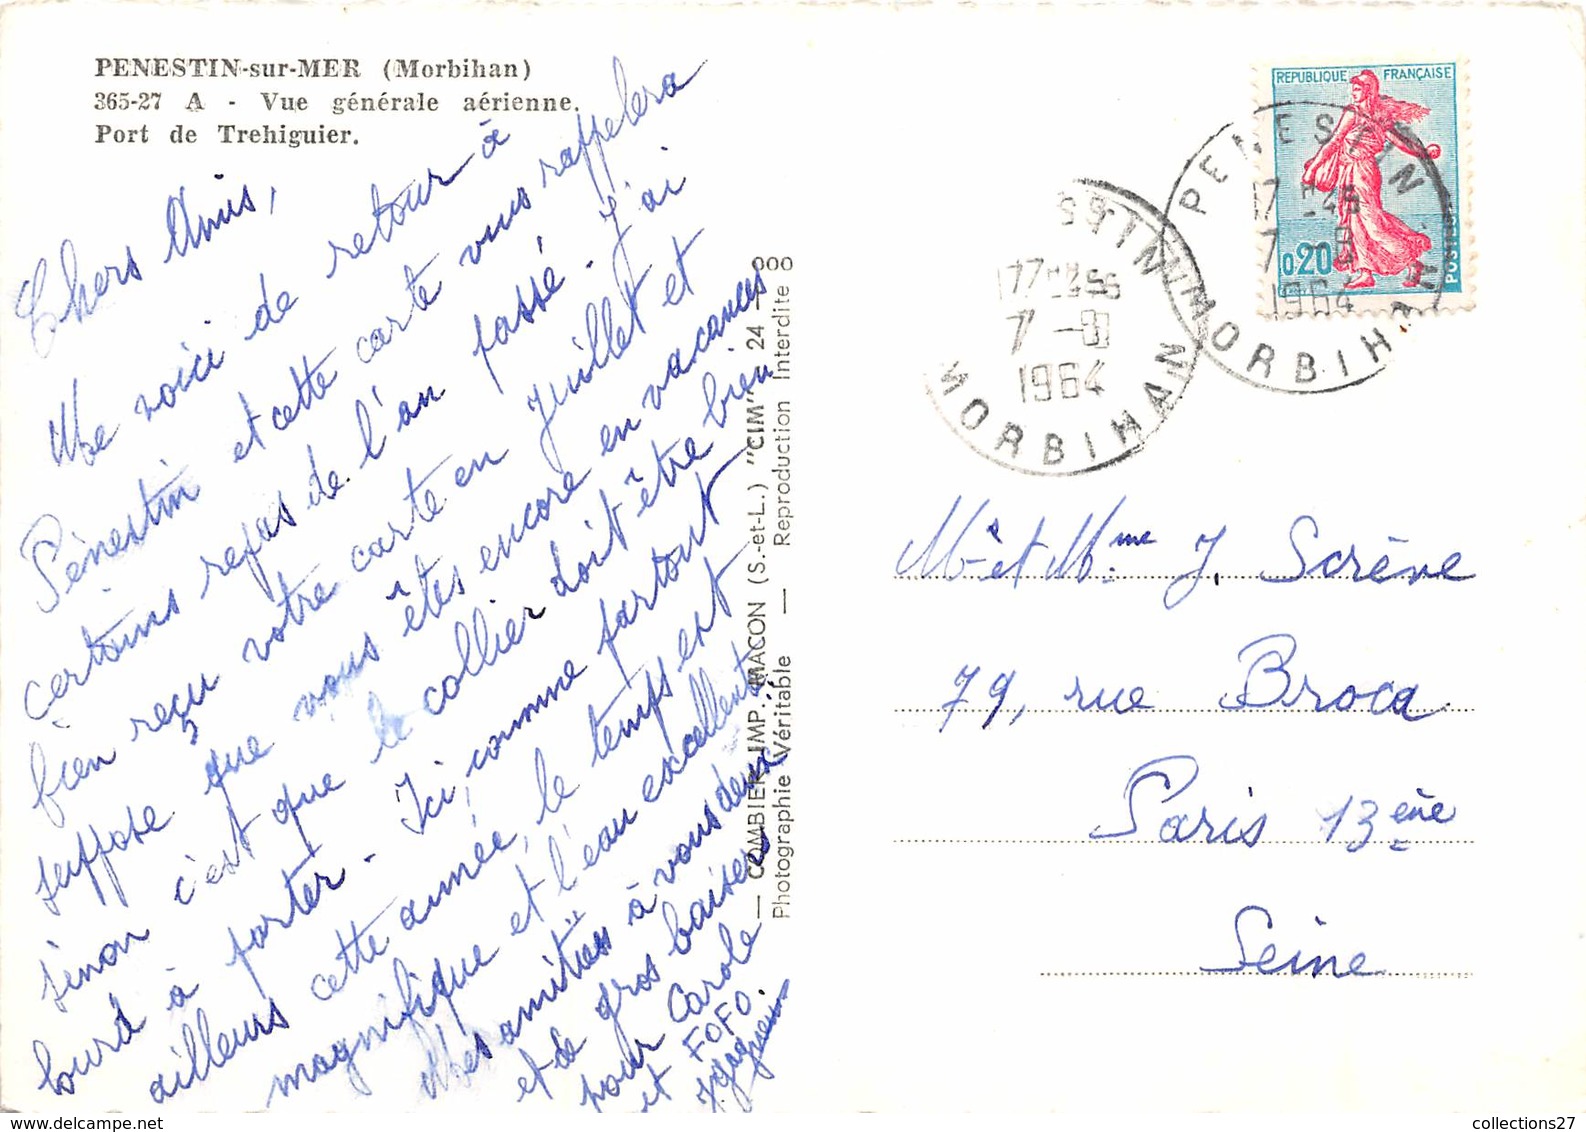 PENESTIN-sur-MER (Morbihan)
365-27 A - Vue générale aérienne.
Port de Trehiguier.
Chers Amis,
Me voici de retour à
Pénestin et cette carte vous rappelera
certains repas de l'an passé. J'ai
bien reçu votre carte en Juillet et
suppose que vous êtes encore en vacances
sinon c'est que le collier doit être bien
lourd à porter. Ici, comme partout
ailleurs cette année, le temps est
magnifique et l'eau excellente.
Mes amitiés à vous deux
et de gros baisers
pour Carole
et FOFO.
— COMBIER IMP. MACON (S.-et-L.) "CIM" 24 —
Photographie Véritable — Reproduction Interdite 000
REPUBLIQUE FRANÇAISE
0,20
POSTES
PENESTIN
17H45
7-8
1964
MORBIHAN
17H45
7-8
1964
MORBIHAN
Mr et Mme J. Scrève
79, rue Broca
Paris 13ème
Seine
collections27